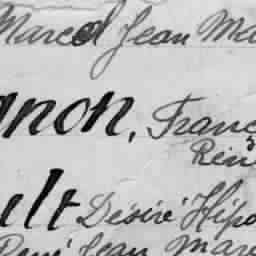 Marcel Jean Ma
gnon, Franç
René
ult Désiré Hipo
René Jean Marc